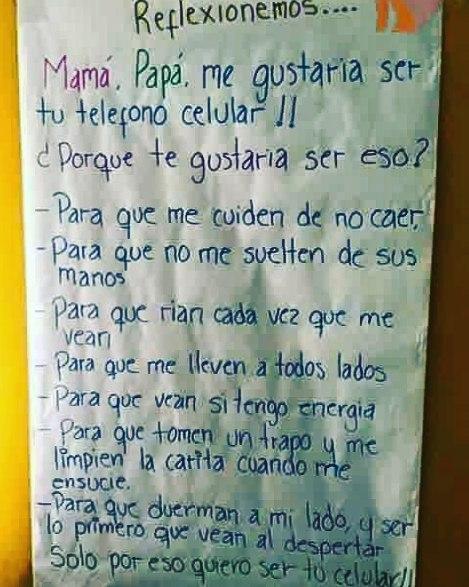 Reflexionemos....
Mamá, Papá, me gustaria ser
tu telefono celular !!
¿Porque te gustaria ser eso?
- Para que me cuiden de no caer.
- Para que no me suelten de sus
manos
- Para que rian cada vez que me
vean
- Para que me lleven a todos lados
- Para que vean si tengo energia
- Para que tomen un trapo y me
limpien la carita cuando me
ensucie.
- Para que duerman a mi lado, y ser
lo primero que vean al despertar
Solo por eso quiero ser tu celular!!